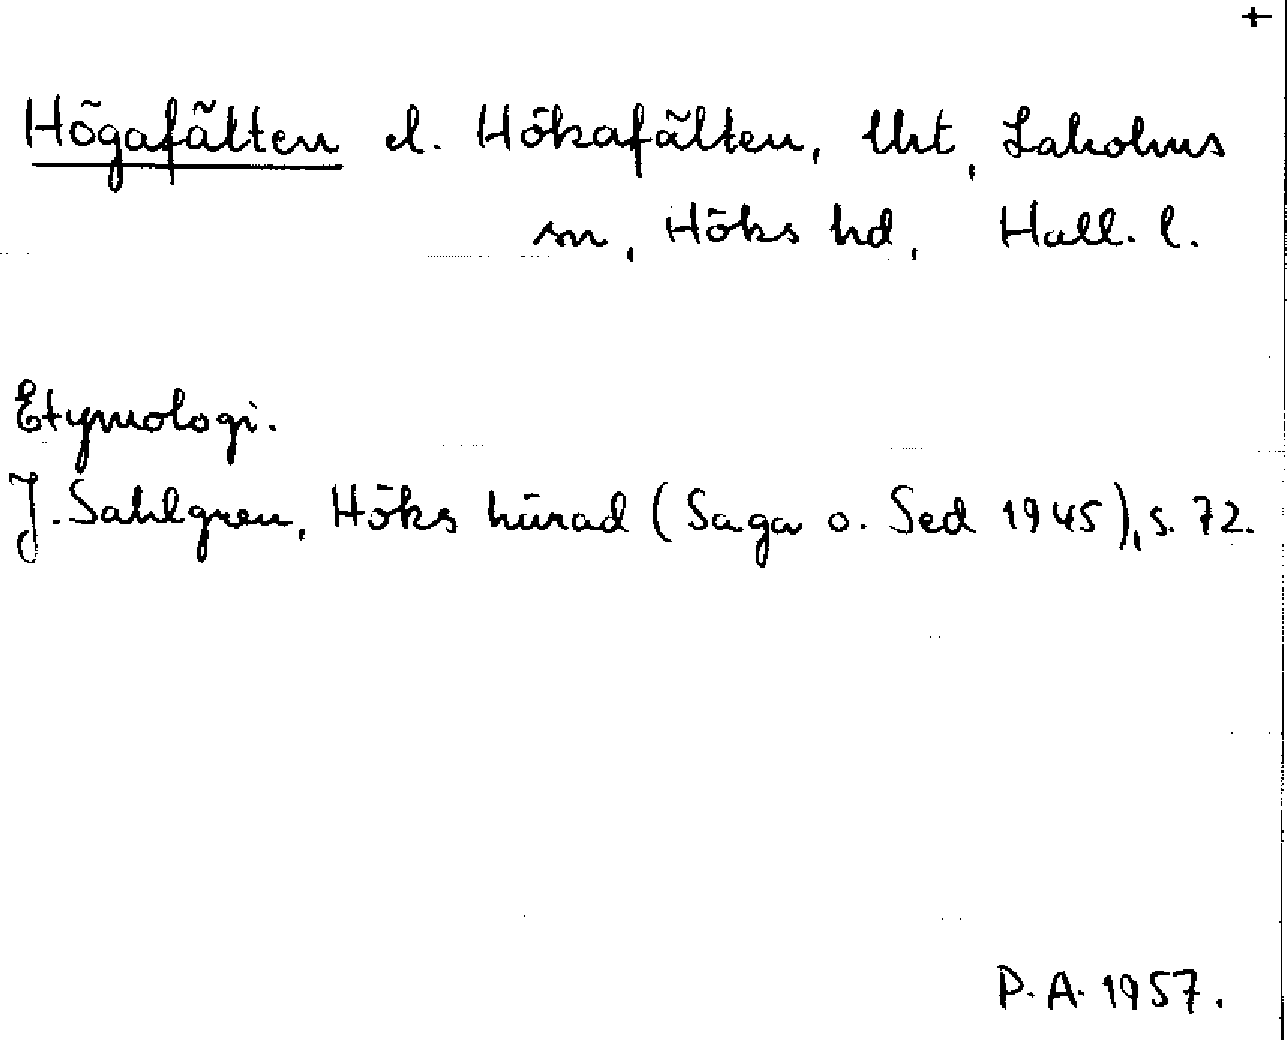 +
Högafälten el. Hökafälten, Uht, Laholms
sn, Höks hd, Hall. l.
Etymologi.
J. Sahlgren, Höks härad (Saga o. Sed 1945), s. 72.
P. A. 1957.